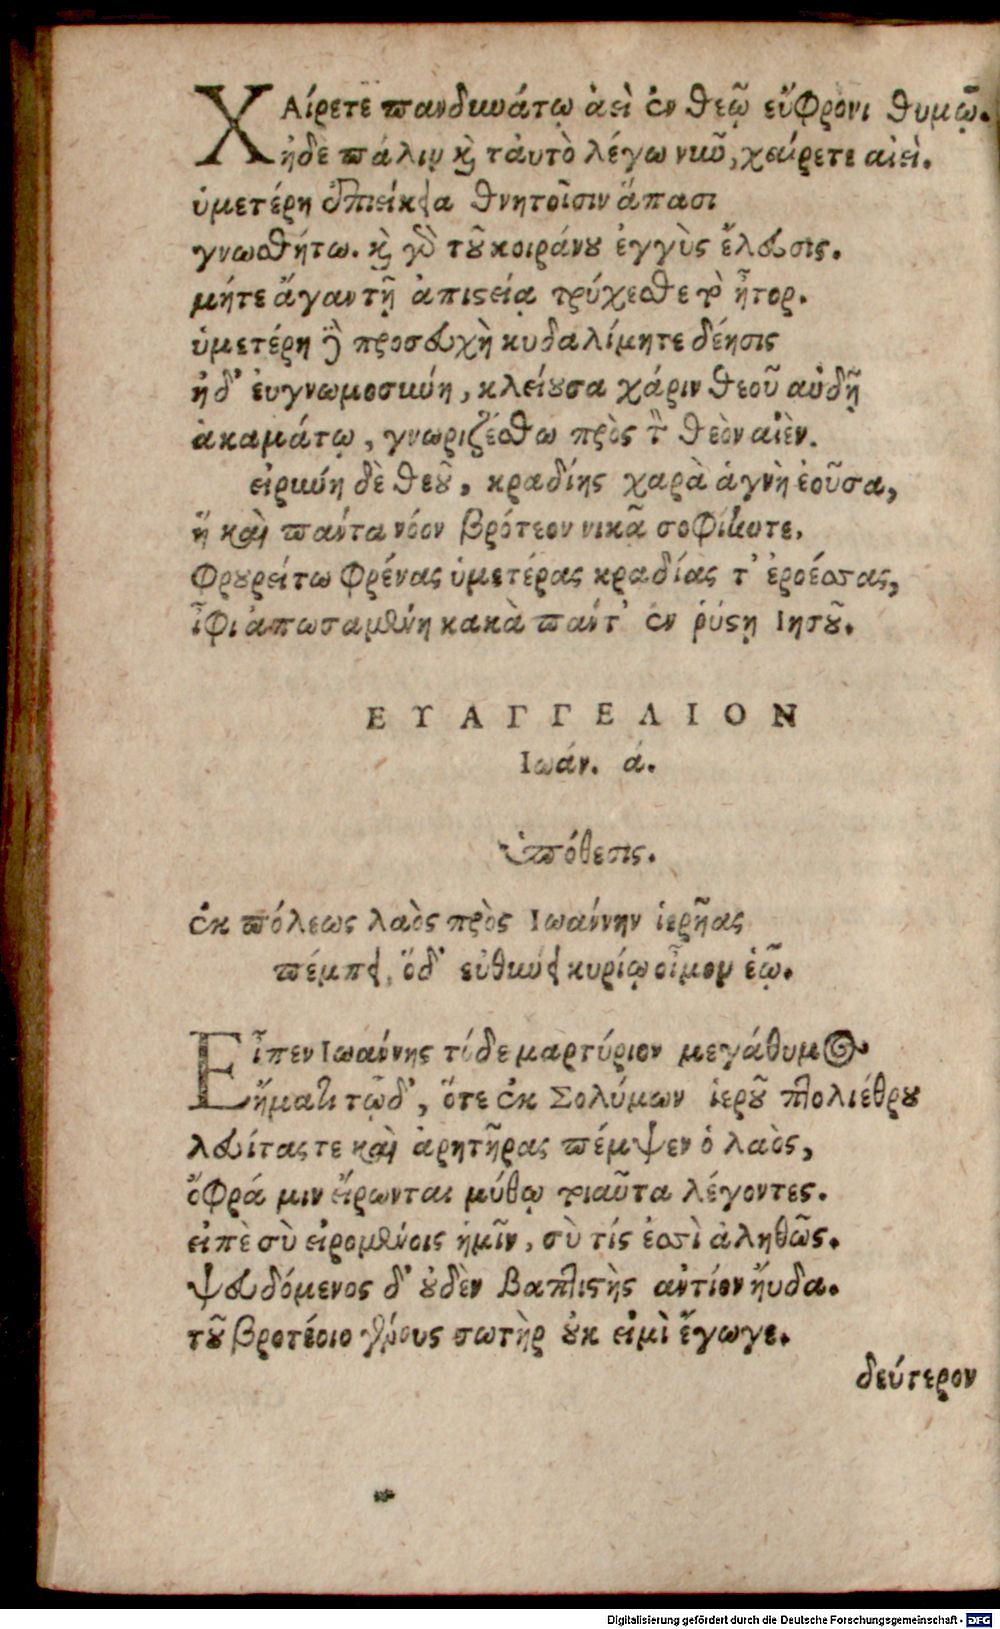 ΧΑίρετε πανδυνάτῳ ἀεὶ ἐν θεῷ εὔφρονι θυμῷ.
ἠδὲ πάλιν καὶ τἀυτὸ λέγω νῦν, χαίρετε αἰεὶ.
ὑμετέρη ἐπιείκεια θνητοῖσιν ἅπασι
γνωσθήτω. καὶ γὰρ τοῦ κοιράνου ἐγγὺς ἔλευσις.
μήτε ἄγαν τῇ ἀπιστείᾳ τρύχεσθε τὸ ἦτορ.
ὑμετέρη δὲ προσευχὴ κυδαλίμητε δέησις
ἠδ' ἐυγνωμοσύνη, κλείουσα χάριν θεοῦ αὐδῇ
ἀκαμάτῳ, γνωριζέσθω πρὸς τὸν θεὸν αἰὲν.
εἰρήνη δὲ θεοῦ, κραδίης χαρὰ ἁγνὴ ἐοῦσα,
ἣ καὶ πάντα νόον βρότεον νικᾷ σοφίην τε,
φρουρείτω φρένας ὑμετέρας κραδίας τ' ἐροέσσας,
ἶφι ἀπωσαμένη κακὰ πάντ' ἐν ῥύστῃ Ιησοῦ.
ΕΥΑΓΓΕΛΙΟΝ
Ιωάν. ά.
ὑπόθεσις.
ἐκ πόλεως λαὸς πρὸς Ιωάννην ἱερῆας
πέμπει, ὅδ' εὐθύνει κυρίῳ οἶμον ἑῷ.
Εἶπεν Ιωάννης τόδε μαρτύριον μεγάθυμος
ἤματι τῷδ', ὅτε ἐκ Σολύμων ἱεροῦ πτολιέθρου
λευίτας τε καὶ ἀρητῆρας πέμψεν ὁ λαὸς,
ὄφρά μιν εἴρωνται μύθῳ τοιαῦτα λέγοντες.
εἰπὲ σὺ εἰρομένοις ἡμῖν, σὺ τίς ἐσσὶ ἀληθῶς.
ψευδόμενος δ' οὐδὲν βαπτιστὴς αντίον ἤυδα.
τοῦ βροτέοιο γένους σωτὴρ οὐκ εἰμὶ ἔγωγε.
δεύτερον
Digitalisierung gefördert durch die Deutsche Forschungsgemeinschaft - DFG